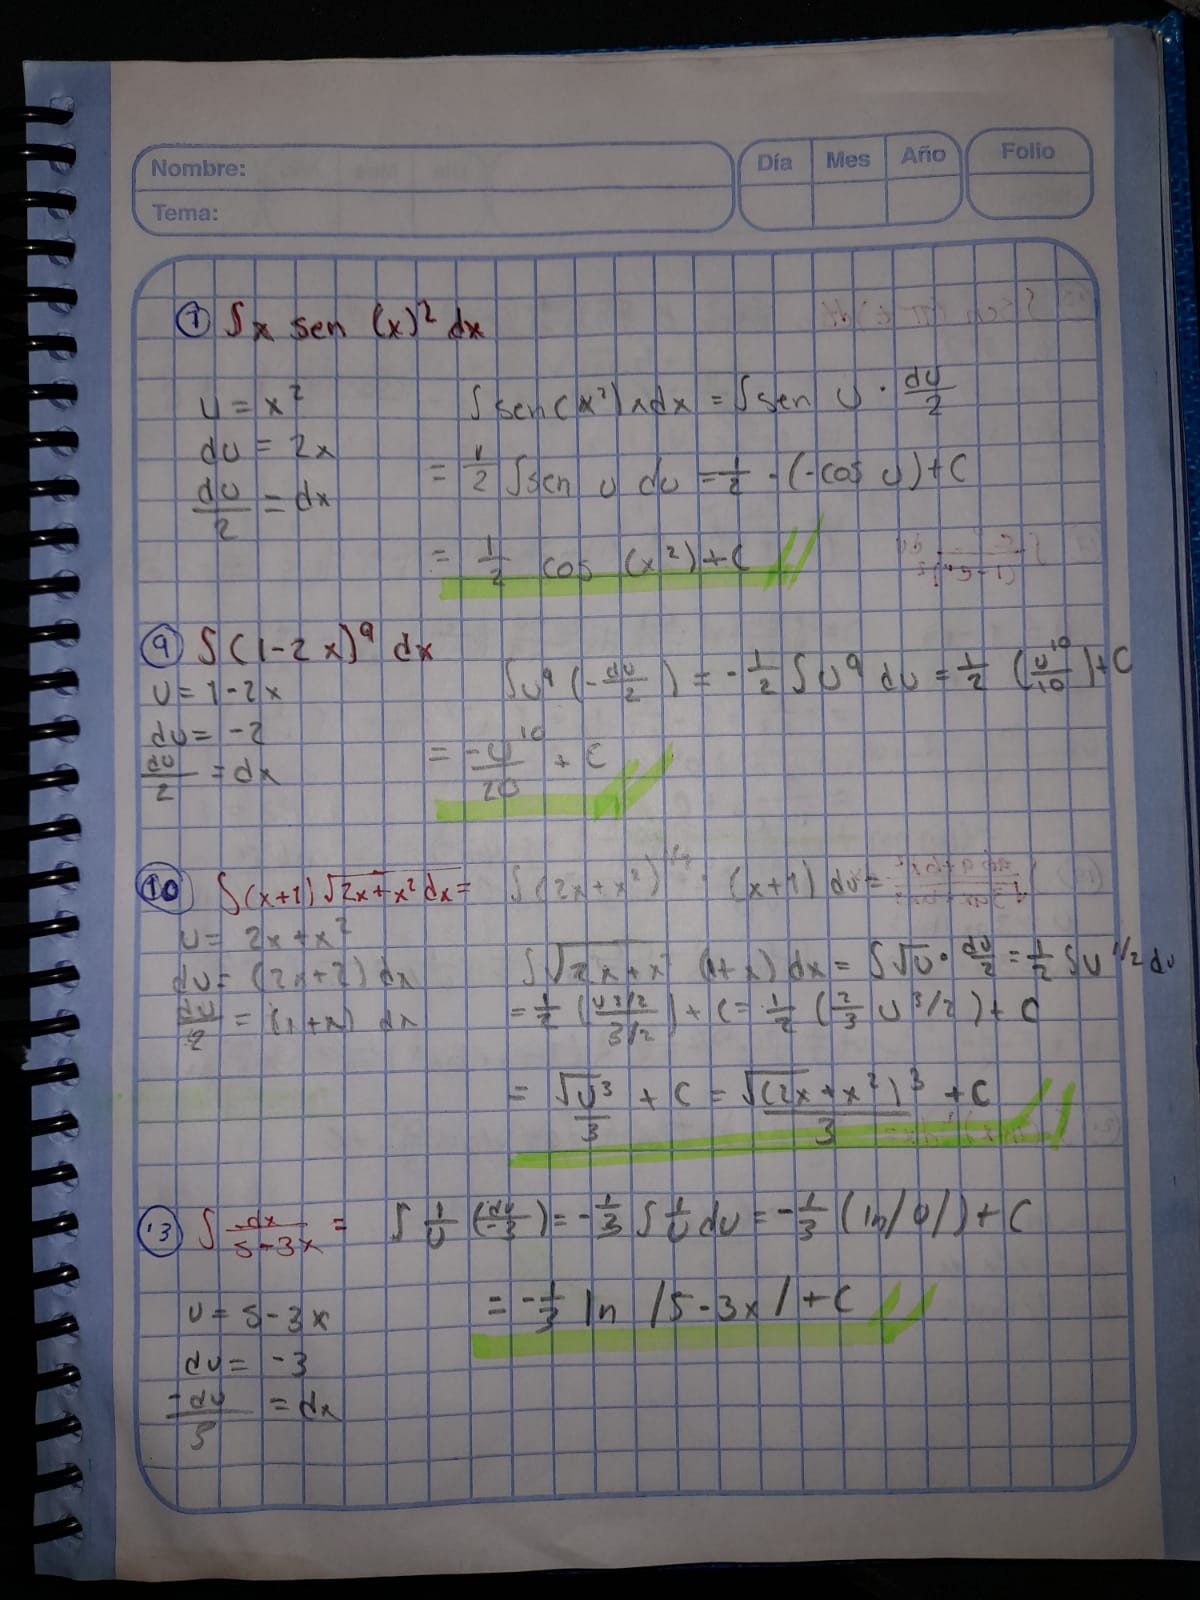 Nombre:
Tema:
Día Mes Año
Folio
7 ∫x sen (x)² dx
u = x²
du = 2x
du/2 = dx
∫sen(x²)xdx = ∫sen u · du/2
= 1/2 ∫sen u du = 1/2 · (-cos u)+C
= 1/2 cos (x²)+C
9 ∫(1-2x)⁹ dx
u = 1-2x
du = -2
du/2 = dx
∫u⁹ (-du/2) = -1/2 ∫u⁹ du = 1/2 (u¹⁰/10)+C
= -u¹⁰/20 + C
10 ∫(x+1)√2x+x² dx = ∫(2x+x²) · (x+1) du=
u = 2x+x²
du = (2x+2) dx
du/2 = (1+x) dx
∫√2x+x² (1+x) dx = ∫√u · du/2 = 1/2 ∫u^1/2 du
= 1/2 (u^3/2 / 3/2) + C = 1/2 (2/3 u^3/2) + C
= √u³/3 + C = √(2x+x²)³/3 + C
13 ∫ dx/5-3x = ∫ 1/u (du/-3) = -1/3 ∫ 1/u du = -1/3 (ln/u/)+C
= -1/3 ln /5-3x/ +C
u = 5-3x
du = -3
-du/3 = dx